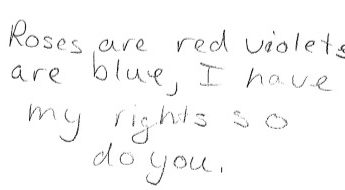 Roses are red violets
are blue, I have
my rights so
do you.